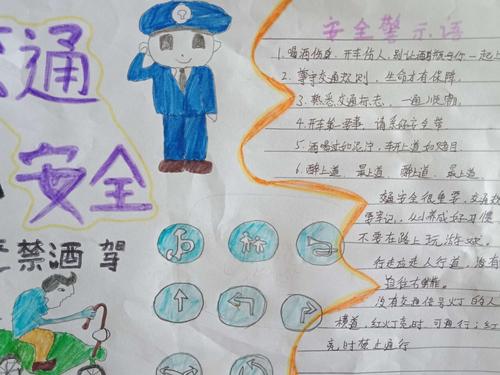 交通
安全
禁酒驾
安全警示语
1.喝酒伤身,开车伤人,别让酒瓶与你一起上
2.遵守交通规则,生命才有保障
3.熟悉交通标志,一通顺
4.开车第一要事,请系好安全带
5.酒喝
6.醉上道
交通安全很重要,交通规
要牢记,从小养成好习惯
不要在路上玩游戏
行走应走人行道,没有
自往右靠
没有交通信号灯的人
横道,红灯亮时可通行;红
亮时禁止通行